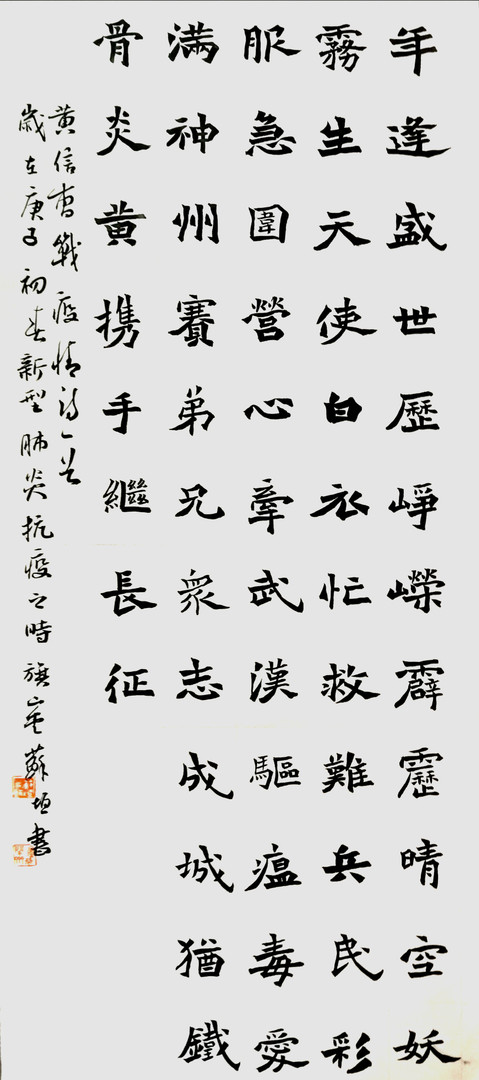 年逢盛世歷崢嶸霹靂晴空妖
霧生天使白衣忙救難兵民彩
服急圍營心牽武漢驅瘟毒愛
滿神州賽弟兄衆志成城猶鐵
骨炎黄携手繼長征
黄信戰疫情詩一首
歲在庚子初春新型肺炎抗疫之時旗蘇垣書